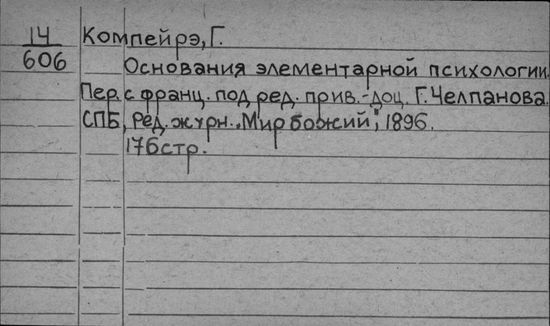 14
606
Компейрэ, Г.
Основания элементарной психологии.
Пер. с франц. под ред. прив.-доц. Г. Челпанова.
СПБ, Ред. журн. „Мир божий", 1896.
176 стр.